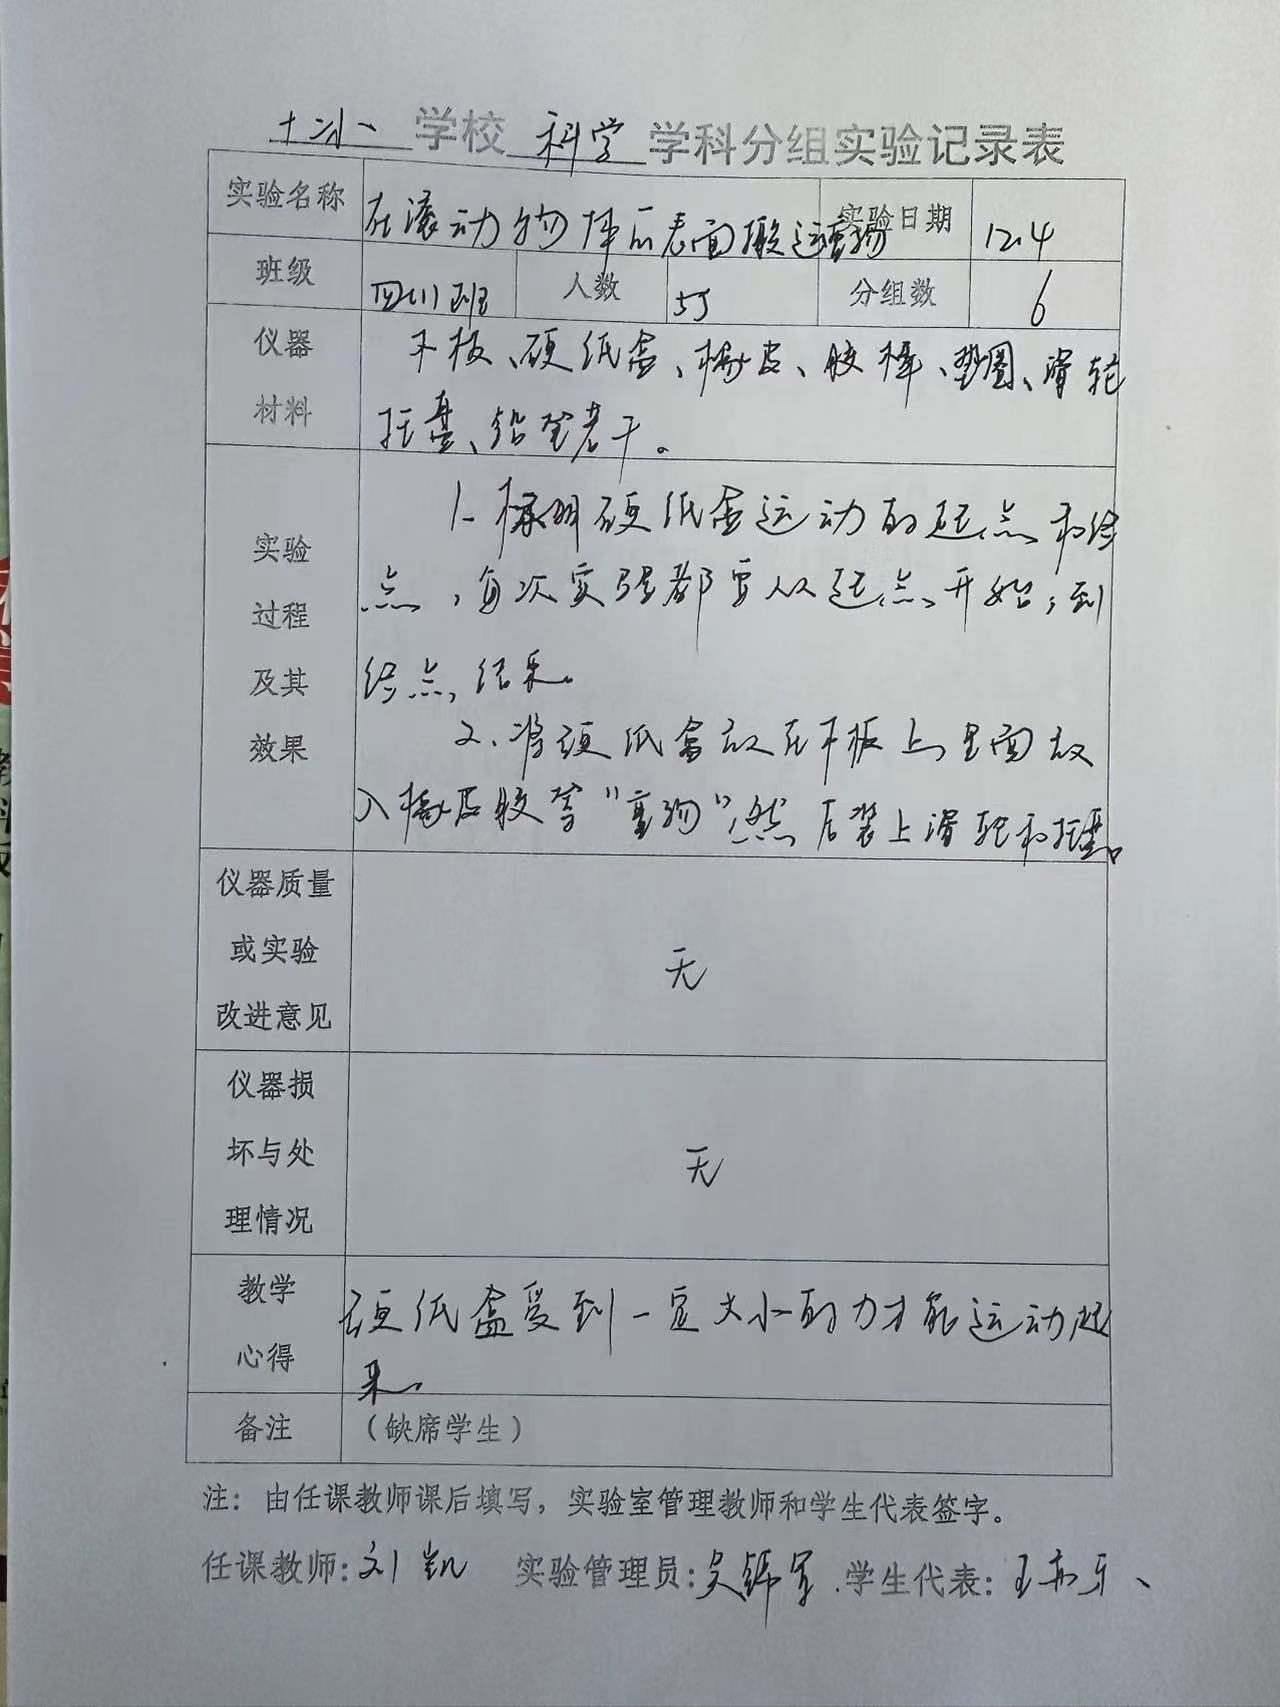 十小 学校 科学 学科分组实验记录表
实验名称 在滚动物体后表面搬运重物 实验日期 12.4
班级 四(1)班 人数 55 分组数 6
仪器 木板、硬纸盒、橡皮、胶棒、垫圈、滑轮
材料 托盘、铅笔若干。
实验 1. 标明硬纸盒运动的起点和终
过程 点,每次实验都要从起点开始,到
及其 终点,结束。
效果 2. 将硬纸盒放在木板上里面放
入橡皮胶等“重物”然后装上滑轮和托盘。
仪器质量
或实验 无
改进意见
仪器损
坏与处 无
理情况
教学 硬纸盒受到一定大小的力才能运动起
心得 来。
备注 (缺席学生)
注: 由任课教师课后填写,实验室管理教师和学生代表签字。
任课教师: 刘凯 实验管理员: 学生代表: 王